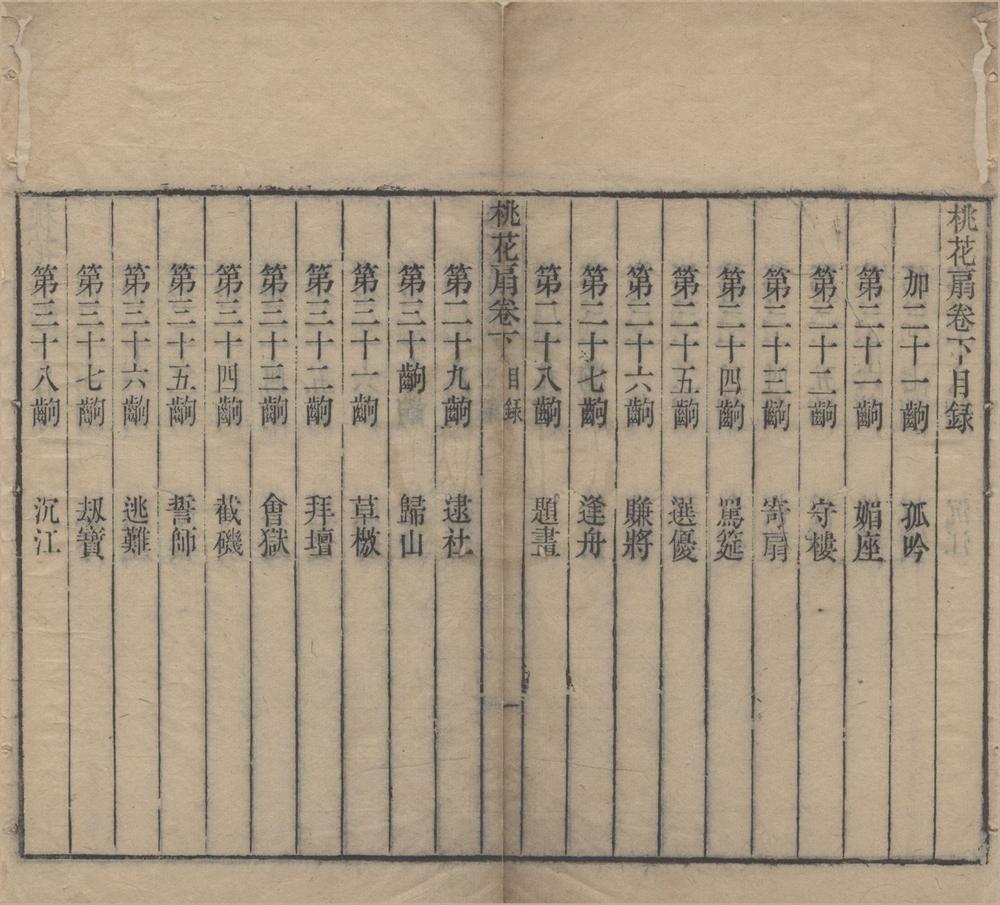 桃花扇卷下目録
加二十一齣　孤吟
第二十一齣　媚座
第二十二齣　守樓
第二十三齣　寄扇
第二十四齣　罵筵
第二十五齣　選優
第二十六齣　賺將
第二十七齣　逢舟
第二十八齣　題畫
桃花扇卷下　目録　一
第二十九齣　逮社
第三十齣　歸山
第三十一齣　草檄
第三十二齣　拜壇
第三十三齣　會獄
第三十四齣　截磯
第三十五齣　誓師
第三十六齣　逃難
第三十七齣　刼寶
第三十八齣　沉江